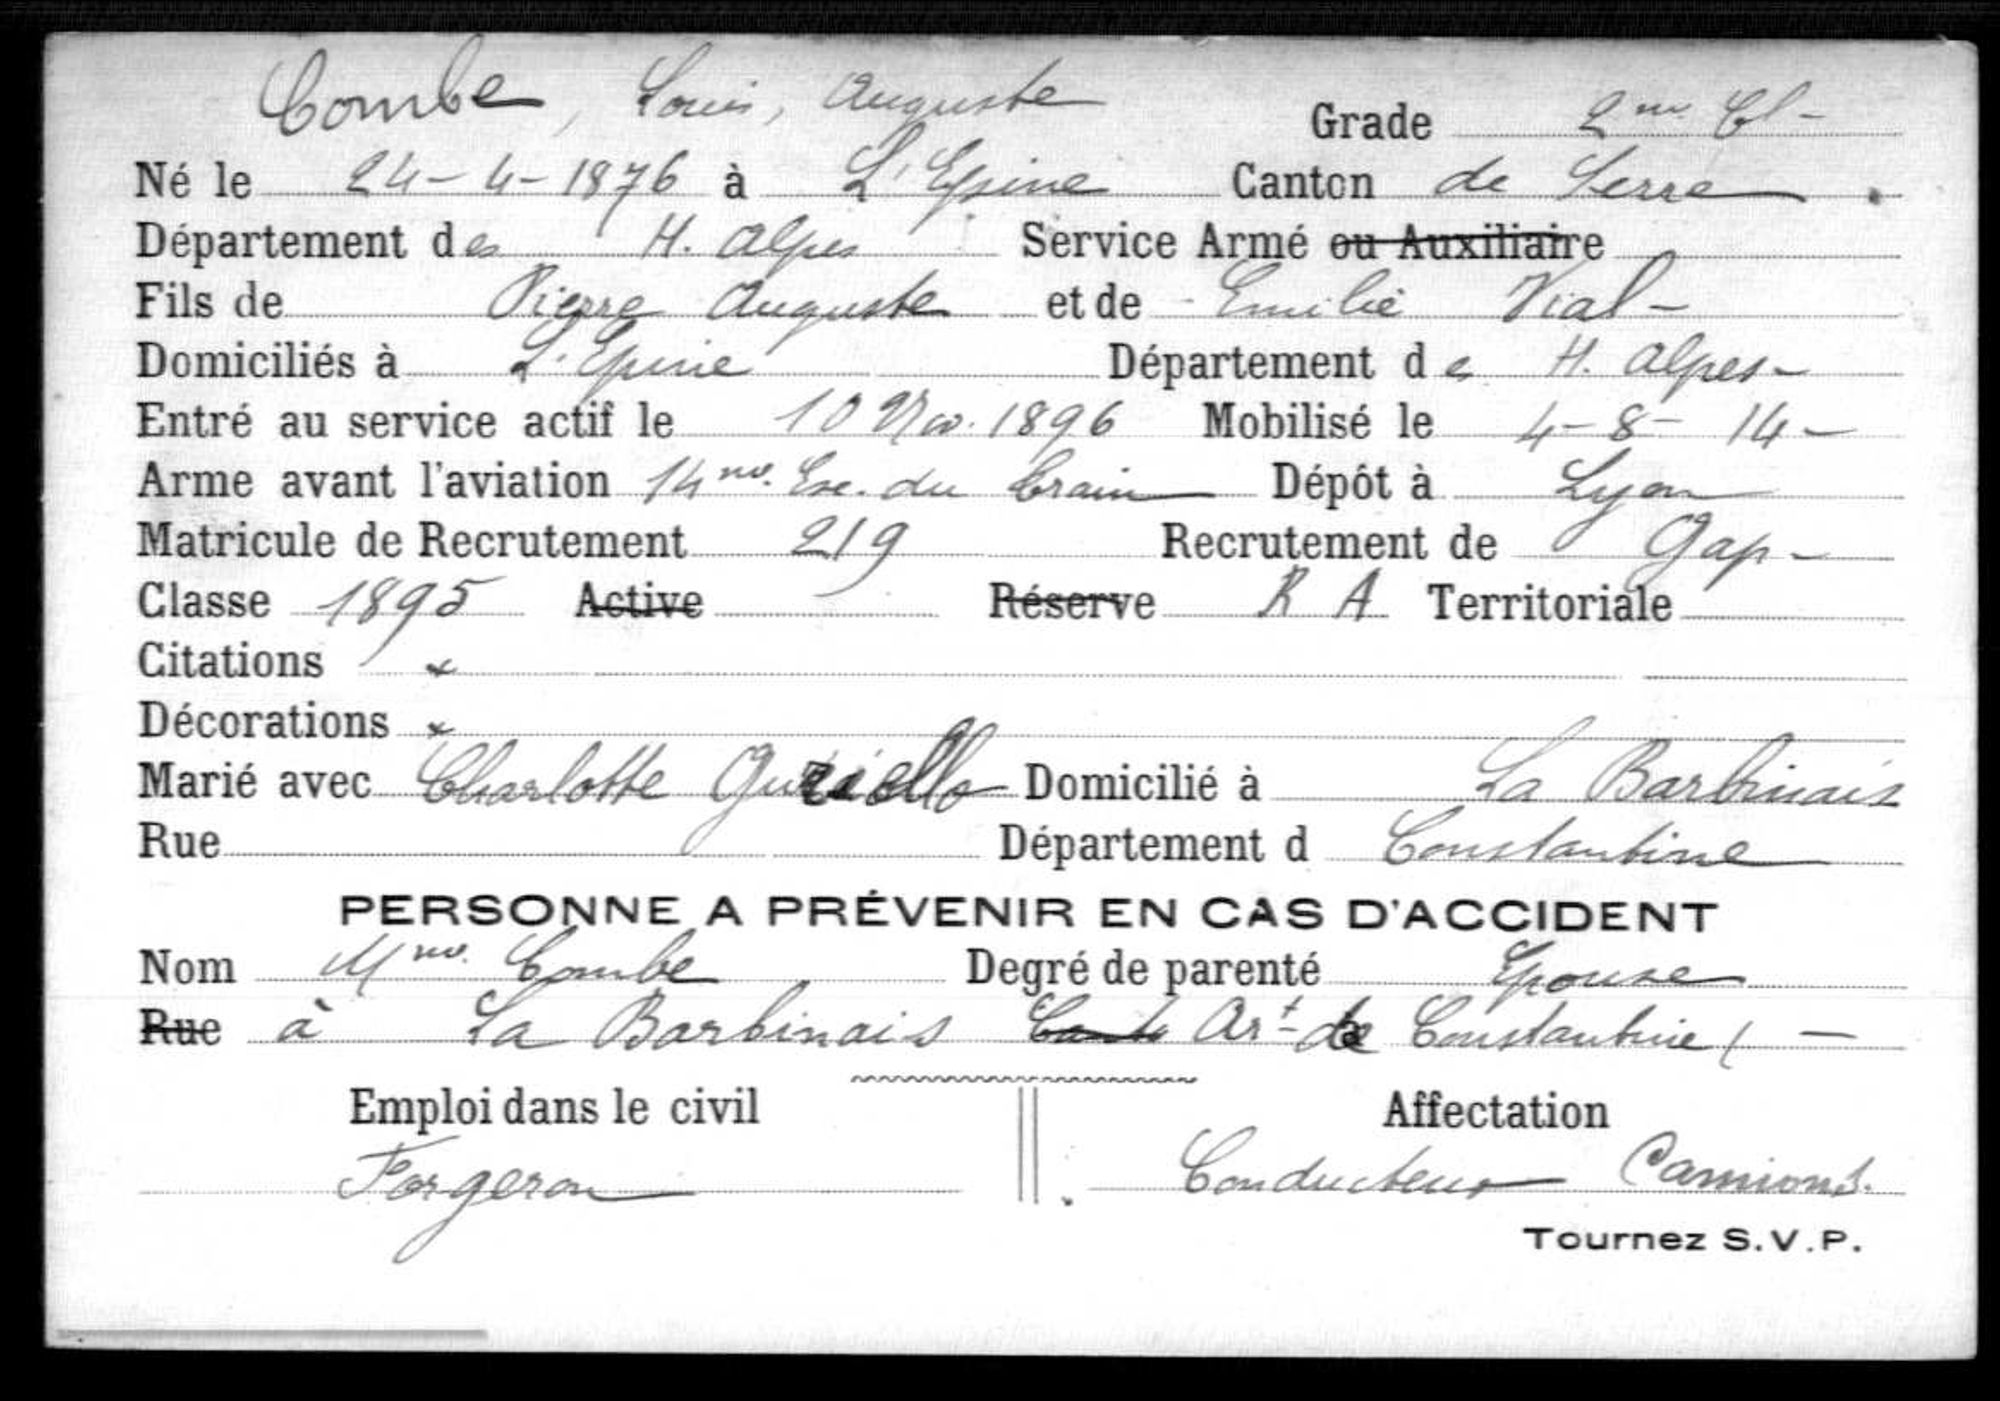 Combe, Louis, Auguste Grade 2me Cl-
Né le 24-4-1876 à L'Epine Canton de Serre
Département des H. Alpes Service Armé ou Auxiliaire
Fils de Pierre Auguste et de Emilie Vial-
Domiciliés à L'Epine Département des H. Alpes-
Entré au service actif le 10 Nov. 1896 Mobilisé le 4-8-14-
Arme avant l'aviation 14me Esc. du train Dépôt à Lyon
Matricule de Recrutement 219 Recrutement de Gap-
Classe 1895 Active Réserve R A Territoriale
Citations
Décorations
Marié avec Charlotte Domicilié à La Barbinais
Rue Département d Constantine
PERSONNE A PRÉVENIR EN CAS D'ACCIDENT
Nom Mme Combe Degré de parenté Epouse
Rue à La Barbinais Art de Constantine (-
Emploi dans le civil Affectation
Forgeron Conducteur Camions.
Tournez S.V.P.